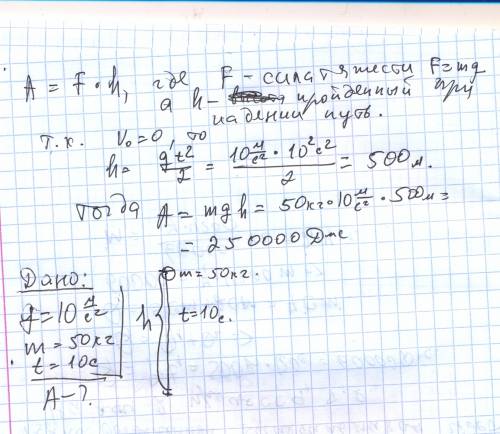 A = F · h, где F - сила тяжести F = mg
а h - пройденный при
падении путь.
т.к. V₀ = 0, то
h = gt²/2 = 10 м/с² · 10² с²/2 = 500 м.
тогда A = mgh = 50 кг · 10 м/с² · 500 м =
= 250000 Дж
Дано:
g = 10 м/с²
m = 50 кг
t = 10 с
A - ?
h
m = 50 кг.
t = 10 с.